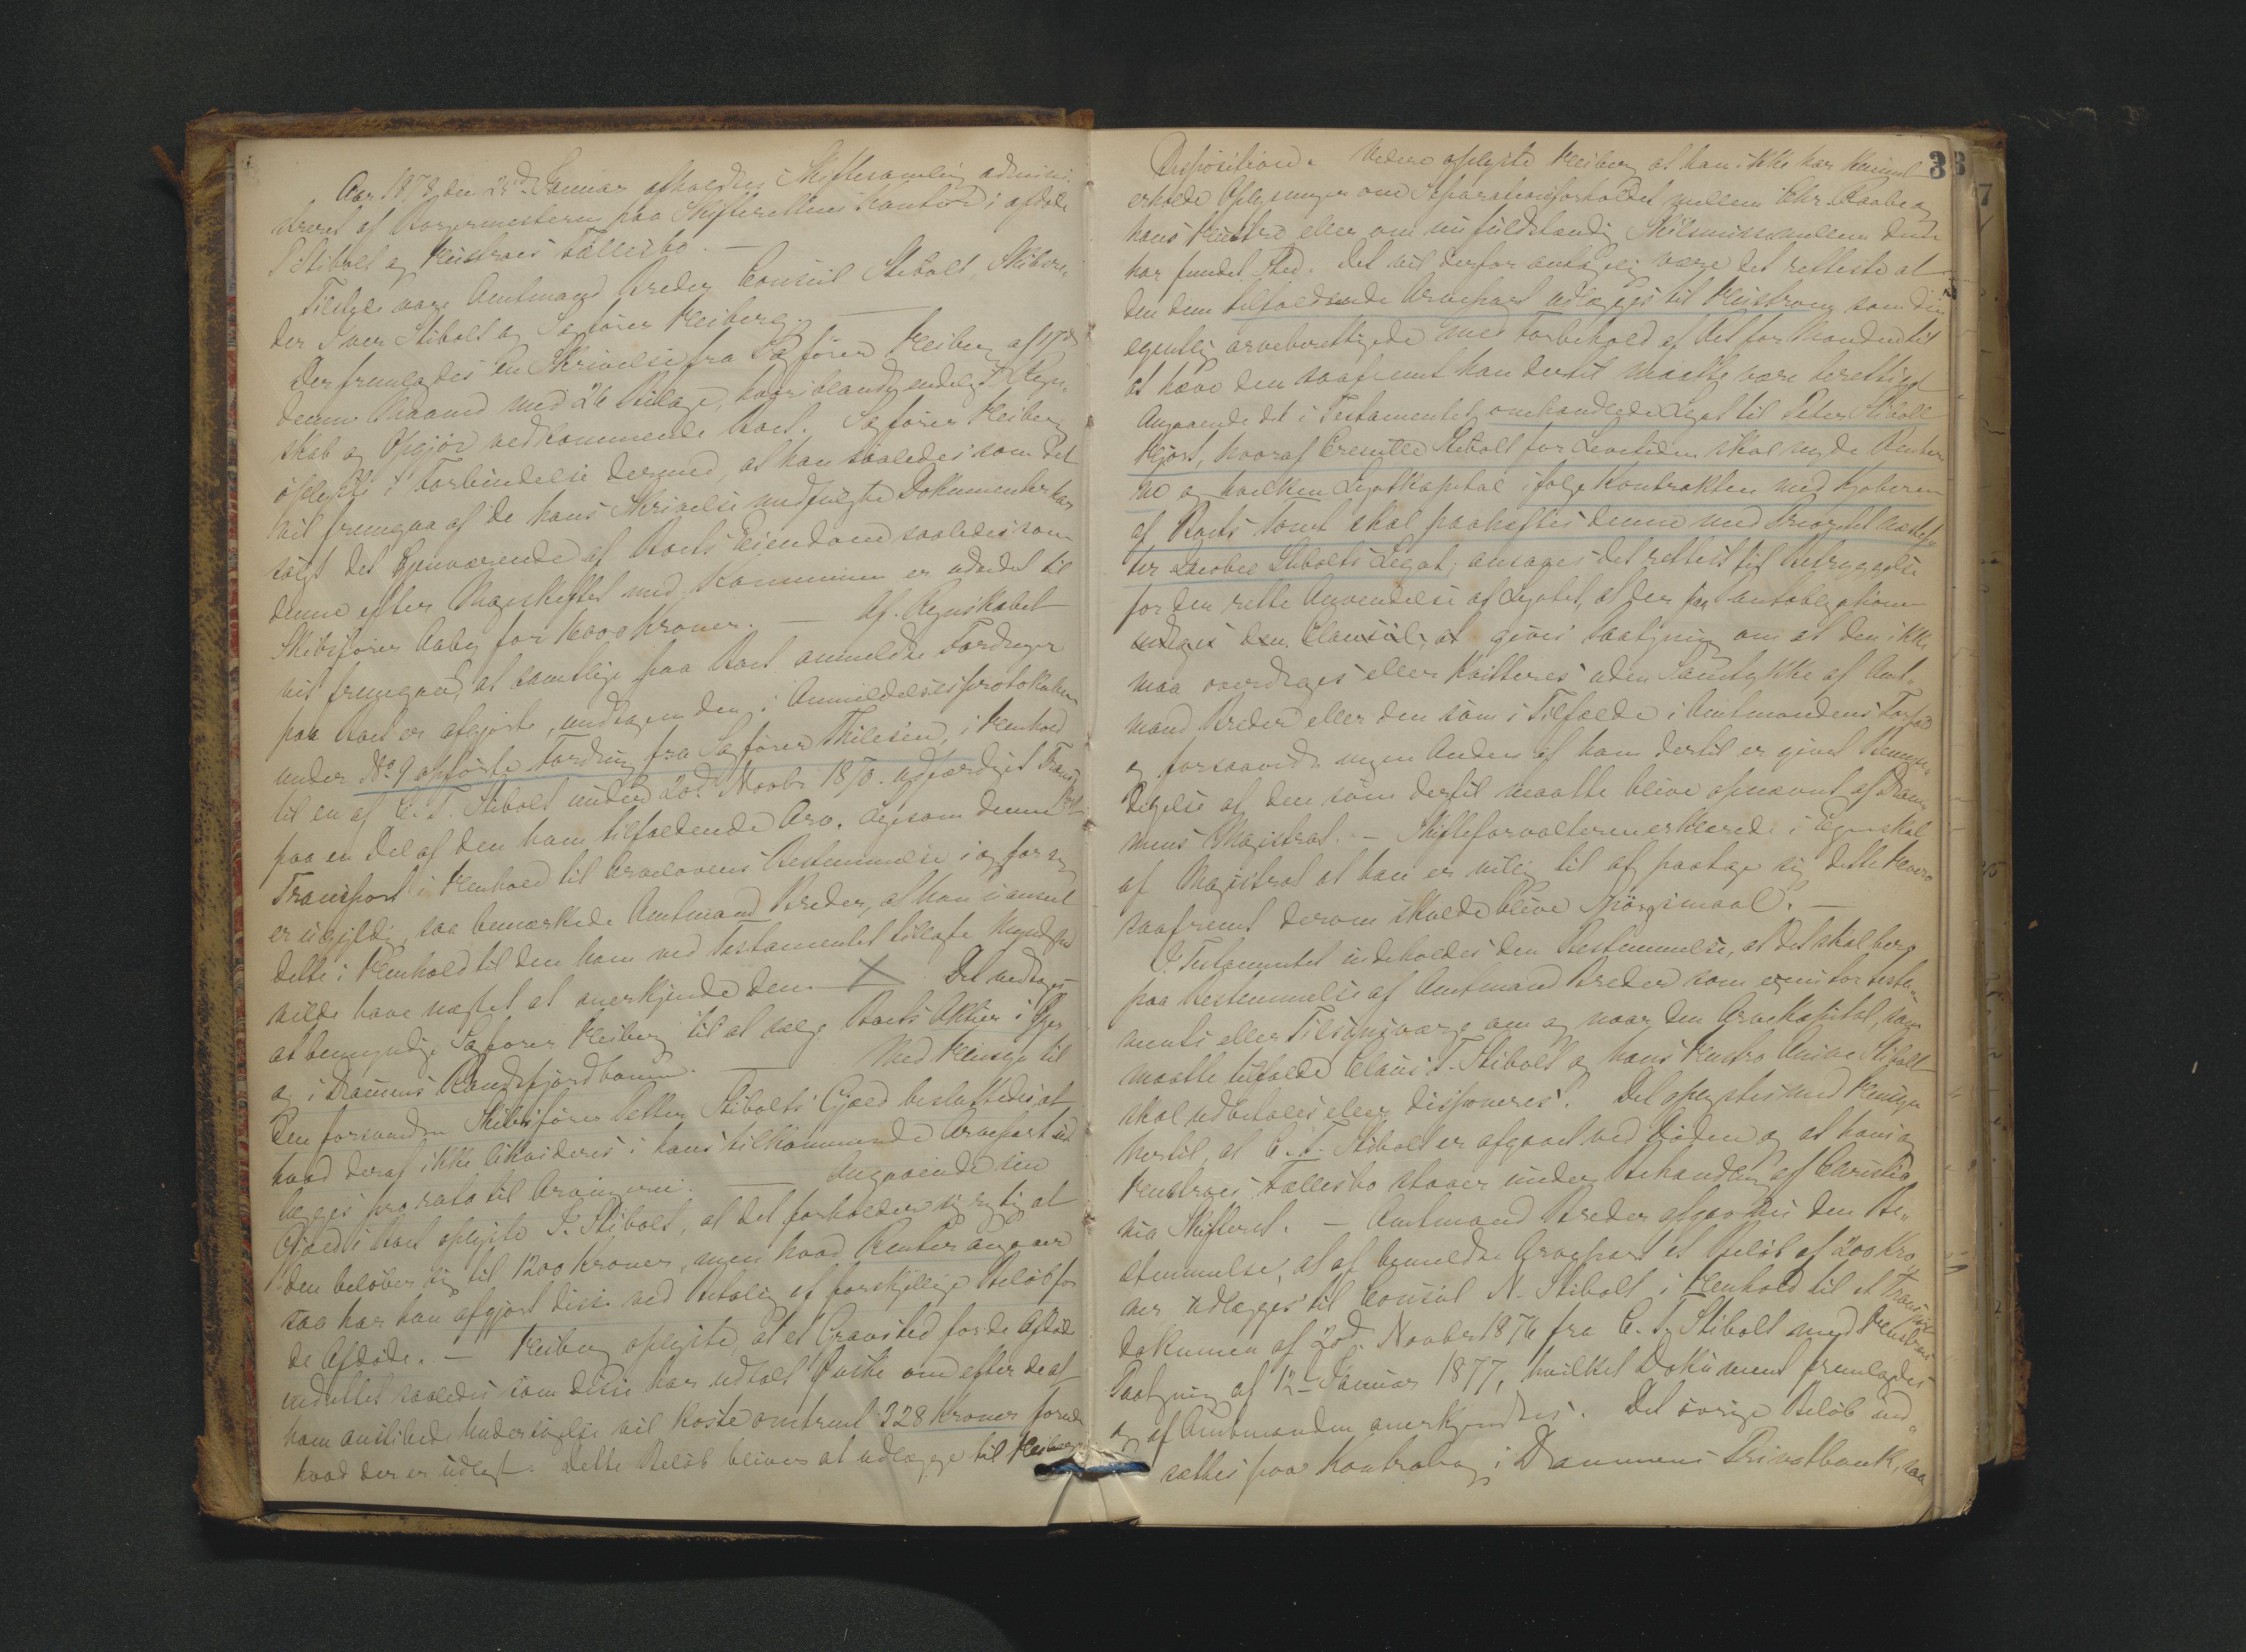 Aar 1878, den 25de Januar afholdtes Skiftesamling admini-
streret af Borgermesteren paa Skifterettens Kontor i afdøde
P. Stibolt og Hustrues Fællesbo. —
Tilstede vare Amtmand Breder Consul Stibolt, Skibsre-
der Iver Stibolt og Sagfører Heiberg. —
Der fremlagdes en Skrivelse fra Sagfører Heiberg af 17de
denne Maaned med 26 Bilage, hvoriblandt endeligt Regn-
skab og Opgjør vedkommende Boet. Sagfører Heiberg
oplyste i Forbindelse dermed, at han saaledes som det
vil fremgaa af de hans Skrivelse medfulgte Dokumenter har
solgt det Gjenværende af Boets Eiendom saaledes som
denne efter Mageskiftet med Kommunen er udvidet til
Skibsfører Aaby for 16000 Kroner. — Af Regnskabet
vil fremgaa, at samtlige paa Boet anmeldte Fordringer
paa Boet er afgjorte, undtagen den i Anmeldelsesprotokollen
under No 9 opførte Fordring fra Sagfører Thilesen, i Henhold
til en af C. T. Stibolt under 20de Novbr 1870 udfærdiget Trans-
port
paa en Del af den ham tilfaldende Arv. Ligesom denne
Transport i Henhold til Arvelovens Bestemmelse i og for sig
er ugyldig, saa bemærkede Amtmand Breder, at han uanseet
dette i Henhold til den ham ved Testamentet tillagte Myndighed
vilde have nægtet at anerkjende den. X Det vedtoges
at bemyndige Sagfører Heiberg til at sælge Boets Aktier i
og i Drammens Randsfjordbanen. — Med Hensyn til
den forsvundne Skibsfører Petter Stibolts Gjæld besluttedes, at
hvad deraf ikke likvideres i hans tilkommende Arvepart ud-
lægges prorata til Arvingerne. — Angaaende sin
Gjæld i Boet oplyste I. Stibolt, at det forholder sig rigtig at
den beløber sig til 1200 Kroner, men hvad Renter angaaer
saa har han afgjort disse ved Betaling af forskjellige Beløb for
de Afdøde. — Heiberg oplyste, at et Gravsted for de Afdøde
indrettet saaledes som disse har udtalt Ønske om efter de af
ham anstillede Undersøgelse vil koste omtrent 328 Kroner foruden
hvad der er udlagt. Dette Beløb bliver at udlægge til Heibergs
33
7
Disposition. Videre oplyste Heiberg at han ikke har kunnet
erholde Oplysninger om Separationsforholdet mellem Chr. Raabe og
hans Hustru eller om nu fuldstændig Skilsmisse mellem dem
har fundet Sted. Det vil derfor antagelig være det retteste at
den dem tilfaldende Arvepart udlægges til Hustruen som den
egentlig arveberettigede med Forbehold af Ret for Manden til
at hæve den saafremt han dertil maatte være berettiget
Angaaende det i Testamentet omhandlede Legat til Peter Stibolt
Hjort, hvoraf Crenille Stibolt for Levetiden skal nyde Renter-
ne og hvilken Legatkapital ifølge Kontrakten med Kjøberen
af Boets Tomt skal paaheftes denne med Prioritet næstef-
ter Jacobee Stibolts Legat, ansages det rettest til Betryggelse
for den rette Anvendelse af Legatet, at der paa Pantobligationen
indtages den Clausul, at gives Paategning om at den ikke
maa overdrages eller kvitteres uden Samtykke af Amt-
mand Breder eller den som i Tilfælde i Amtmandens Forfald
og forsaavidt ingen Anden af ham dertil er givet Bemyn-
digelse af den som dertil maatte blive opnævnt af Dram-
mens Magistrat. — Skifteforvalteren erklærede i Egenskab
af Magistrat at han er villig til at paatage sig dette Hverv
saafremt derom skulde blive Spørgsmaal. —
I Testamentet indeholdes den Bestemmelse, at det skal bero
paa Bestemmelse af Amtmand Breder som executor testa-
menti eller Tilsynsværge om og naar den Arvekapital, som
maatte tilfalde Claus T. Stibolt og hans Hustru Anine Stibolt
skal udbetales eller disponeres. Det oplystes med Hensyn
hertil, at C. T. Stibolt er afgaaet ved Døden og at hans og
Hustrues Fællesbo staaer under Behandling af Christia-
nia Skifteret. — Amtmand Breder afgav nu den Be-
stemmelse, at af bemeldte Arvepart et Beløb af 200 Kro-
ner udlægges til Consul N. Stibolt i Henhold til et Transport-
dokument af 20de Novbr 1876 fra C. T. Stibolt med Hustrues
Paategning af 12 Januar 1877, hvilket Dokument fremlagdes
og af Amtmanden anerkjendtes. Det øvrige Beløb ind-
sættes paa Kontrabog i Drammens Privatbank, saa